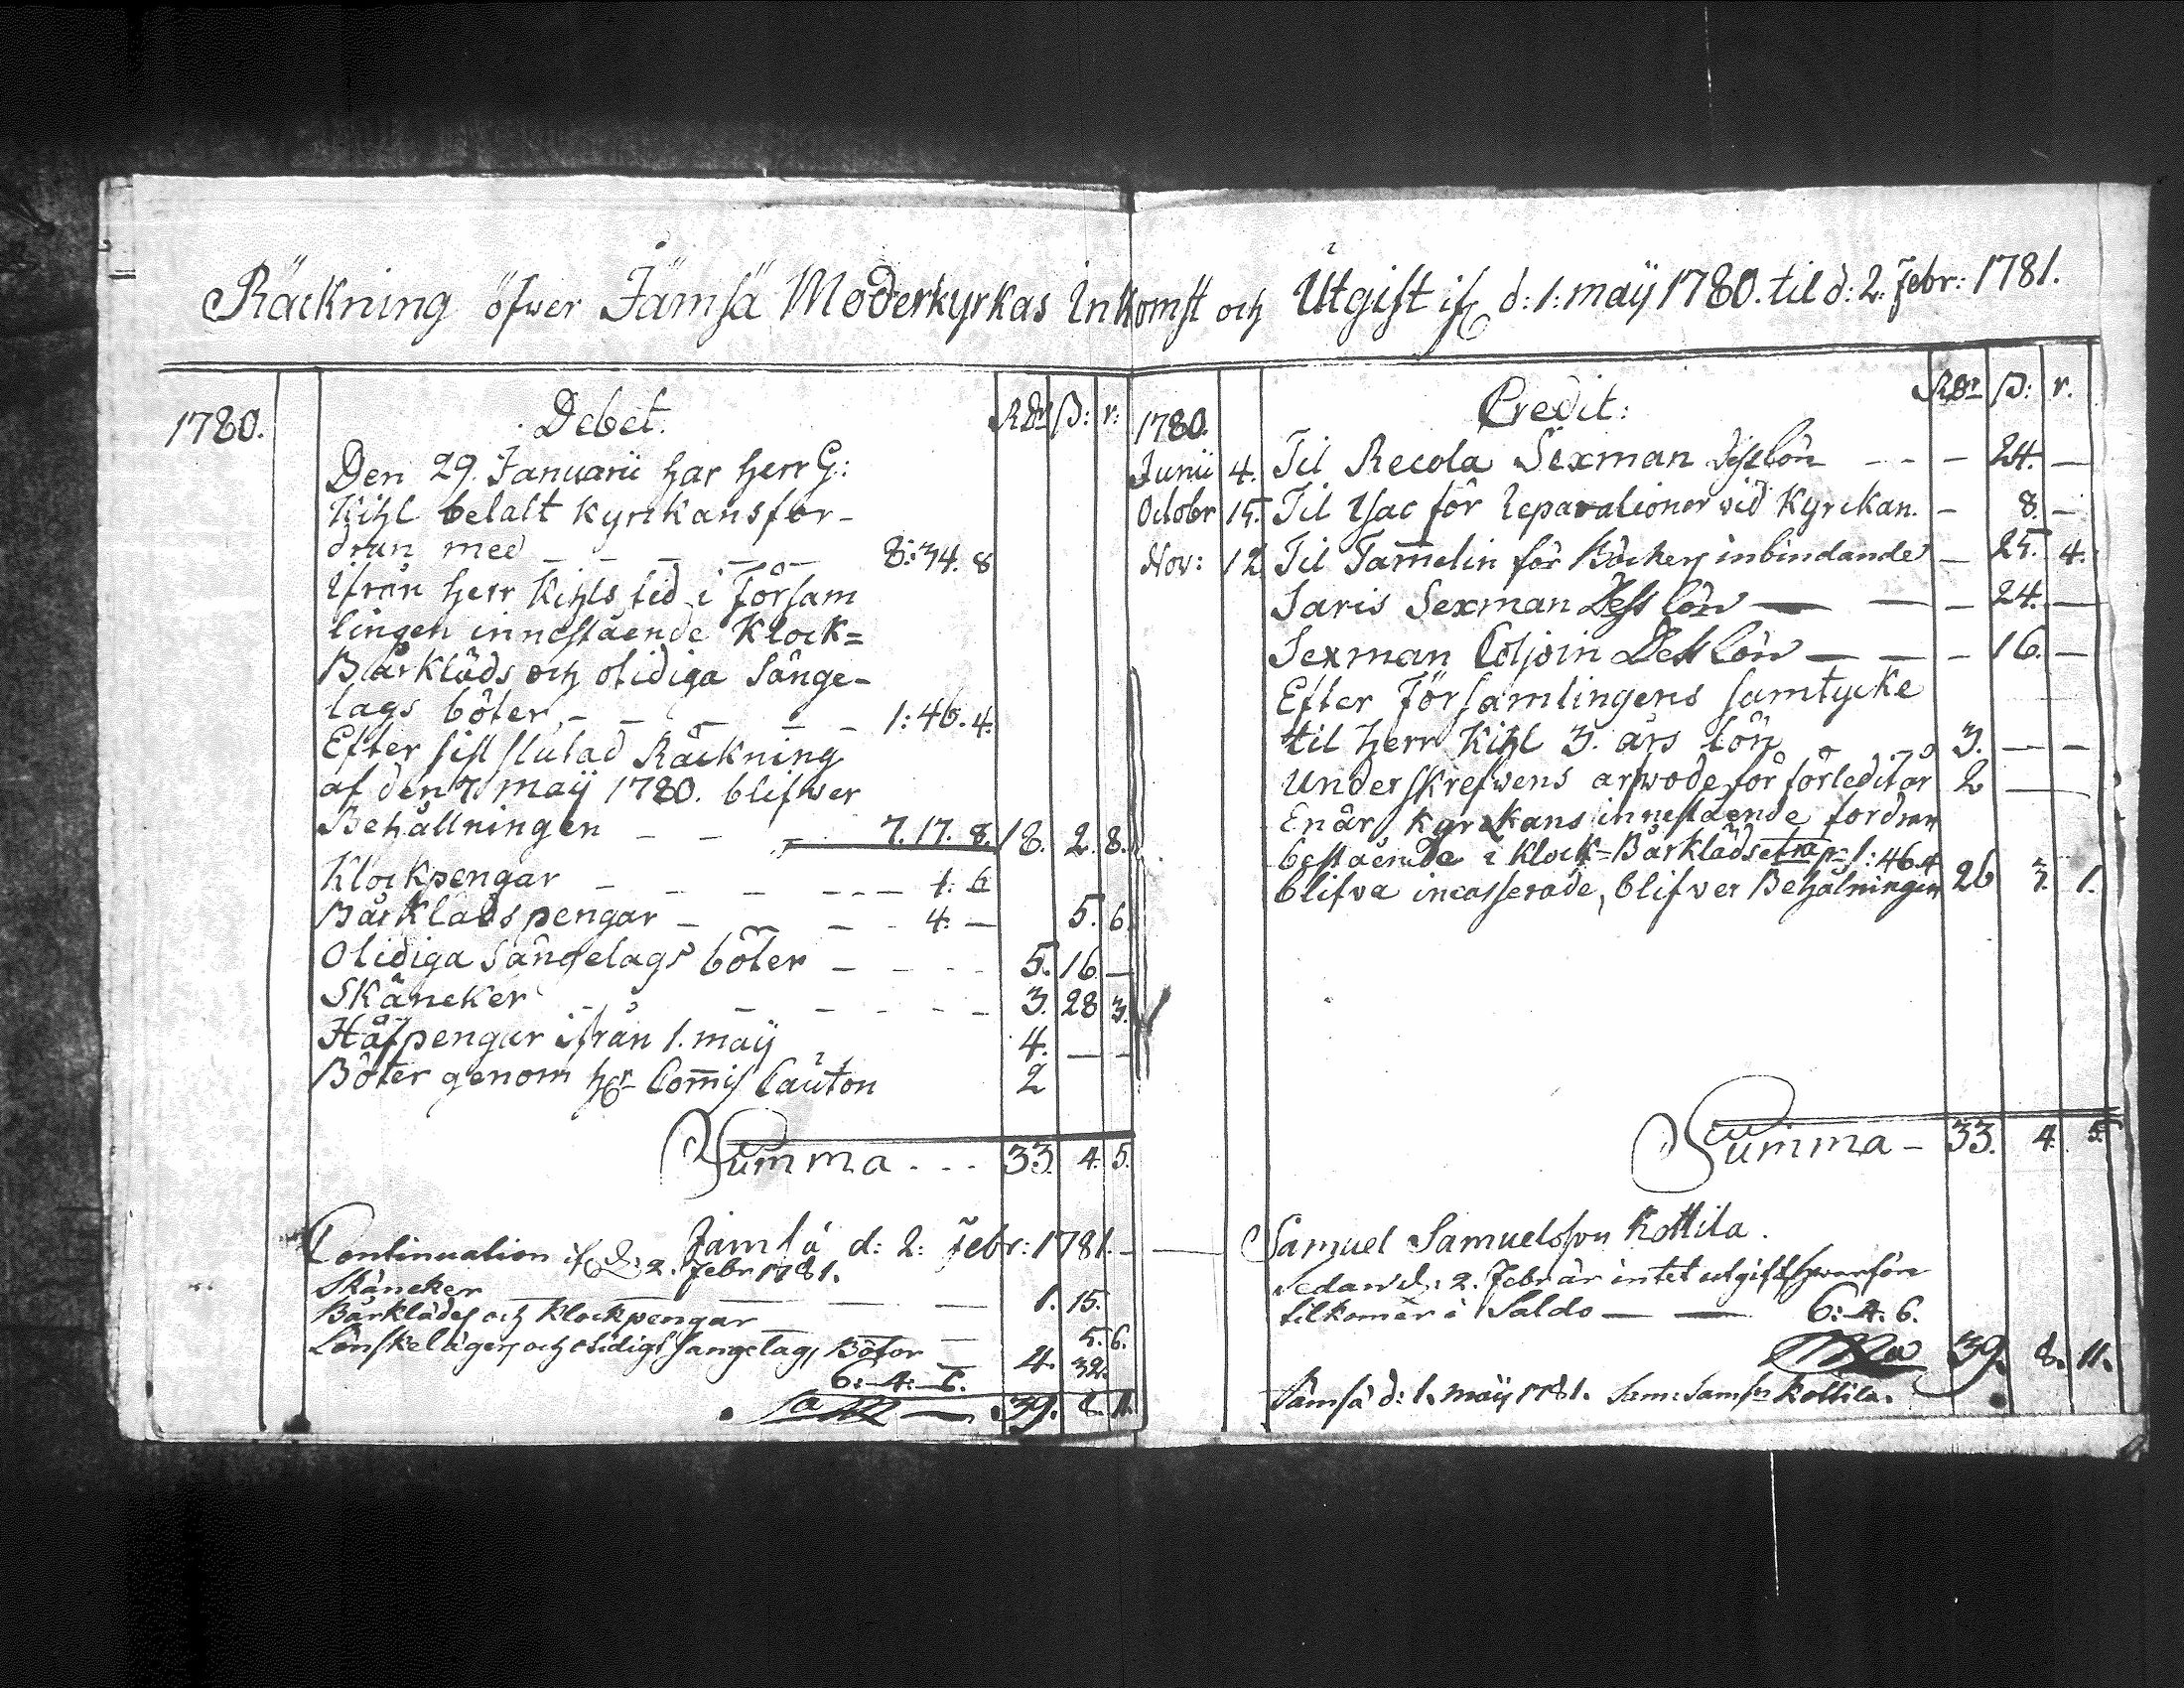 Räckning öfwer Jämsä Moderkyrkas Inkomst och Utgift if. d: 1: maij 1780. til d: 2. Febr: 1781.
1780. Debet. RDr ß: r:
Den 29. Januarii har herr G:
Kihl betalt kyrkans for-
dran med — — — — — 8:34. 8
Ifrån herr Kihls tid i Församlingen
lingen innestående Klock=
Bårkläds och otidiga Sänge-
lags böter, — — — — — 1:46. 4.
Efter sist slutad Räckning
af den 7. maij 1780. blifwer
Behållningen — — — 7. 17. 8. 18. 2. 8.
Klockpengar — — — — — 1: 6
Bårklädspengar — — — — 4. — 5. 6
Otidiga Sängelags böter — — — — 5. 16 —
Skäncker — — — — — — 3. 28 3.
Håfpengar ifrån 1. maij 4. — —
Böter genom hr Comis Cauton 2
Summa - - - 33. 4. 5.
Jämsä d: 2: Febr: 1781. —
Continuation if. d: 2. Febr 1781.
Skäncker — — — — 1. 15.
Bårklädes och Klockpengar — — 5. 6.
Lönskelägers och otidigt sängelags Böter — 4. 32.
6: 4: 6.
Sa 39. 8. 11.
1780. Credit: RDr ß: r.
Junii 4. Til Recola Sexman dess lön - - — 24. —
Octobr 15. Til Isac för Reparationer vid Kyrckan. — 8. —
Nov: 12 Til Tam̄elin för Böckers inbindande — 25. 4.
Saris Sexman Dess lön — — — 24. —
Sexman Coljoin Dess lön — — — 16. —
Efter Församlingens samtycke
til herr Kihl 3. års lön 3. — —
Underskrefwens arfwode för förledit år 2 — —
Enär Kyrckans innestående fordran
bestående i Klock=Bårkläds etra 1:46.4
blifva incasserade, blifver Behålningen 26 3. 1.
Summa — 33. 4. 5.
Samuel Samuelsson Kottila.
Sedan d: 2. Febr är intet utgift hwarföre
tilkom̄er i Saldo — — 6: 4. 6.
Sa 39. 8. 11.
Jämsä d: 1. maij 1781. Sam: Samss: Kottila.